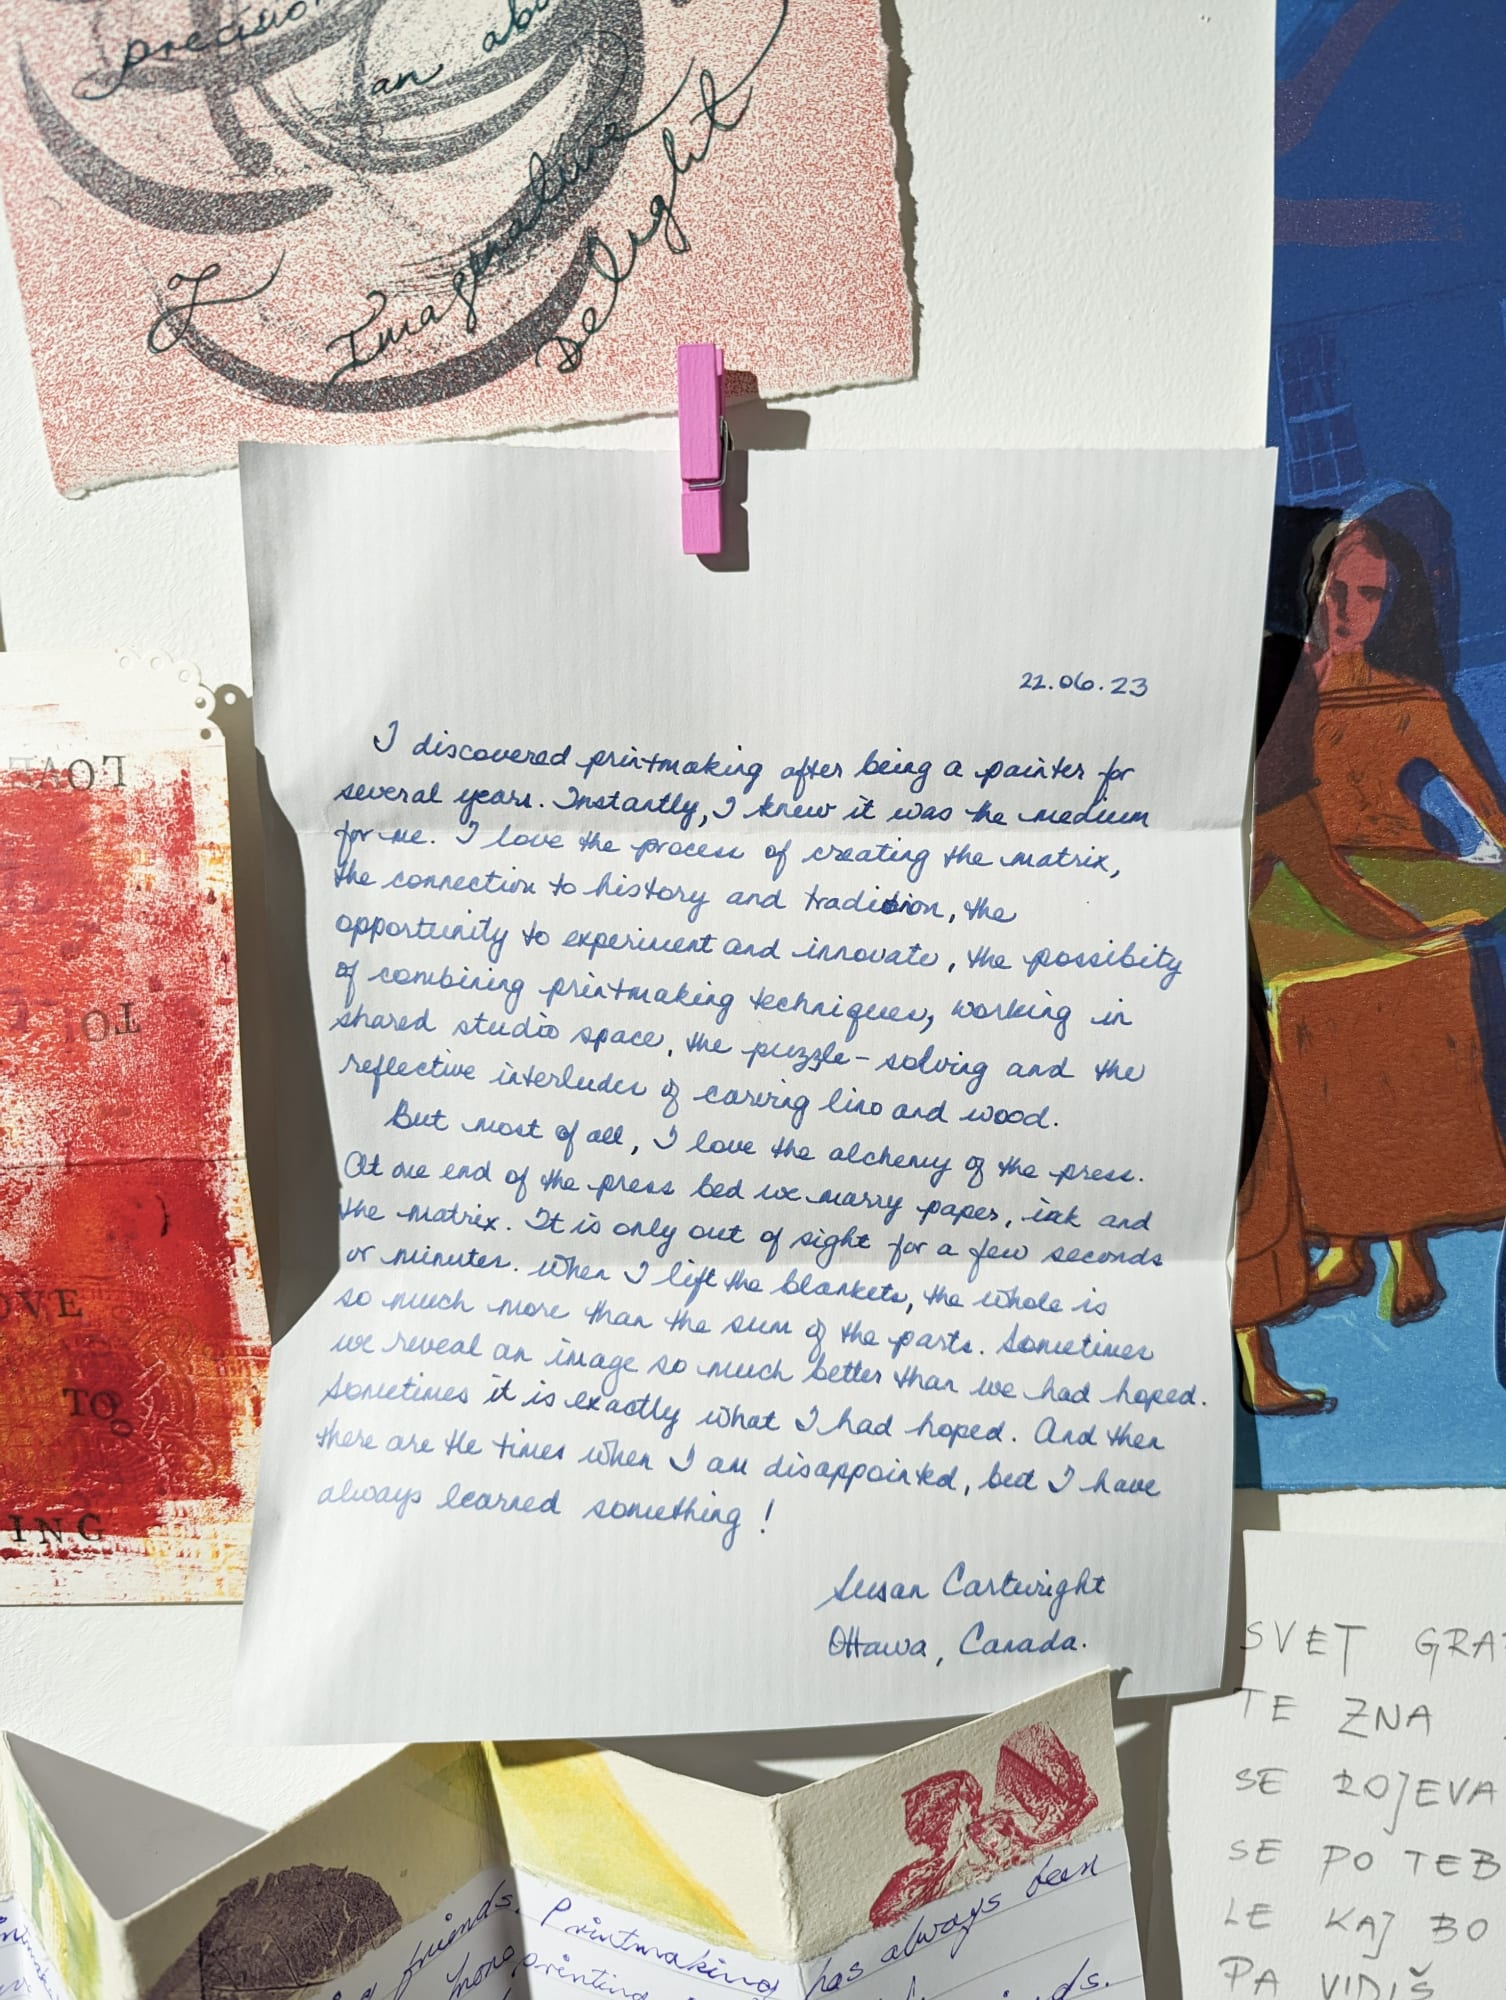 precision
an
Imaginative
Delight
22.06.23
I discovered printmaking after being a painter for
several years. Instantly, I knew it was the medium
for me. I love the process of creating the matrix,
the connection to history and tradition, the
opportunity to experiment and innovate, the possibity
of combining printmaking techniques, working in
shared studio space, the puzzle-solving and the
reflective interludes of carving lino and wood.
But most of all, I love the alchemy of the press.
At one end of the press bed we marry paper, ink and
the matrix. It is only out of sight for a few seconds
or minutes. When I lift the blankets, the whole is
so much more than the sum of the parts. Sometimes
we reveal an image so much better than we had hoped.
Sometimes it is exactly what I had hoped. And then
there are the times when I am disappointed, but I have
always learned something!
Susan Cartwright
Ottawa, Canada.
LOVE
TO
OVE
TO
ING
SVET GRA
TE ZNA
SE ROJEVA
SE PO TEB
LE KAJ BO
PA VIDIŠ
friends.
more
Printmaking
printing
has always been